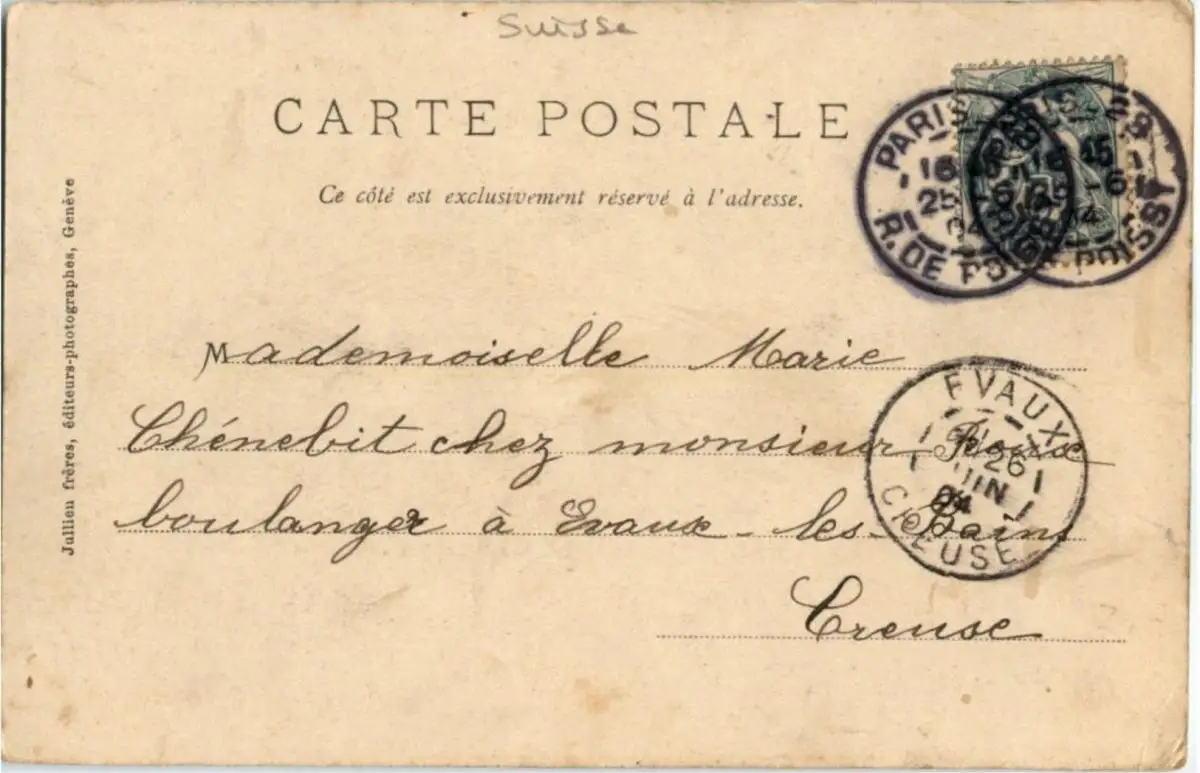 Suisse
CARTE POSTALE
Ce côté est exclusivement réservé à l'adresse.
PARIS
16 45
25 -6
04
R. DE POISSY
PARIS - 29
16 45
25 -6
04
R. DE POISSY
Mademoiselle Marie
Chénebit chez monsieur Roux
boulanger à Evaux-les-Bains
Creuse
EVAUX
26
JUIN
04
CREUSE
Jullien frères, éditeurs-photographes, Genève